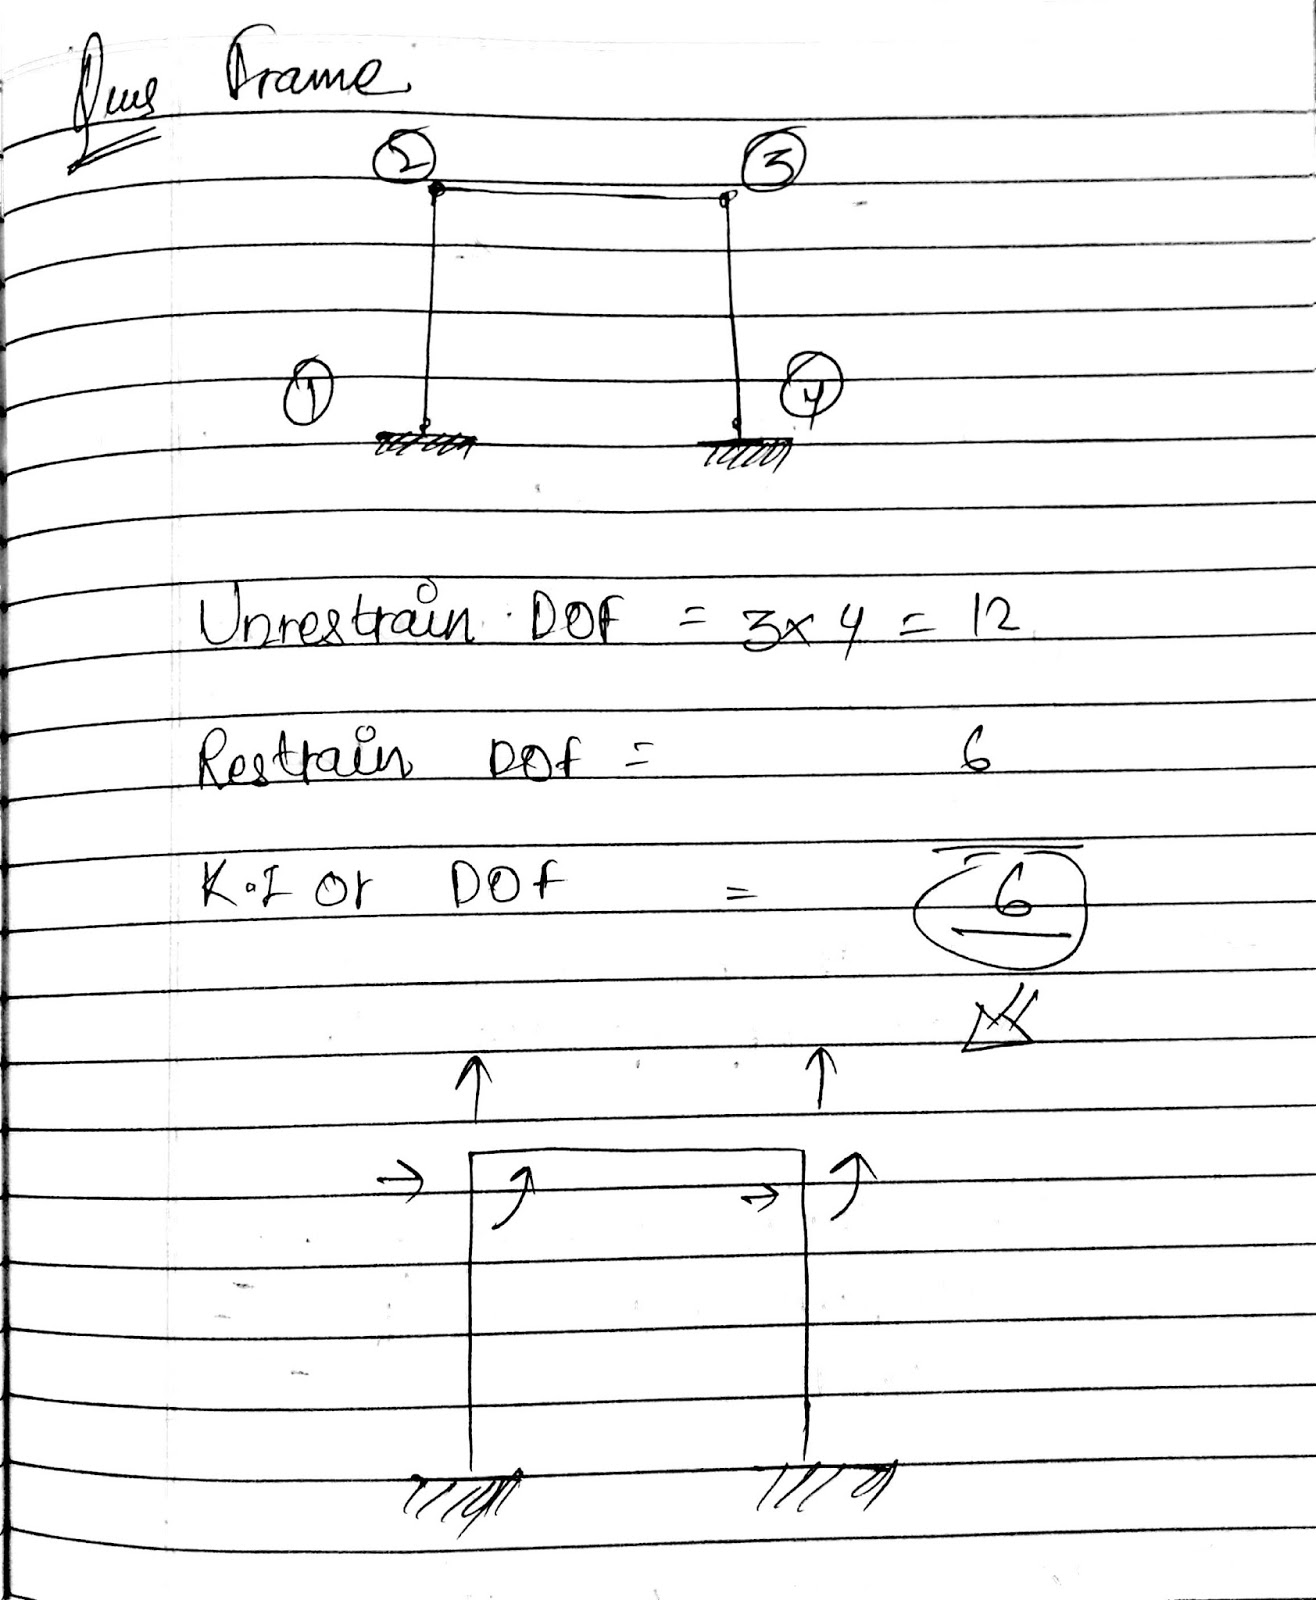 Ques Frame
② ③
① ④
Unrestrain DOF = 3×4 = 12
Restrain DOF = 6
K.I or DOF = 6